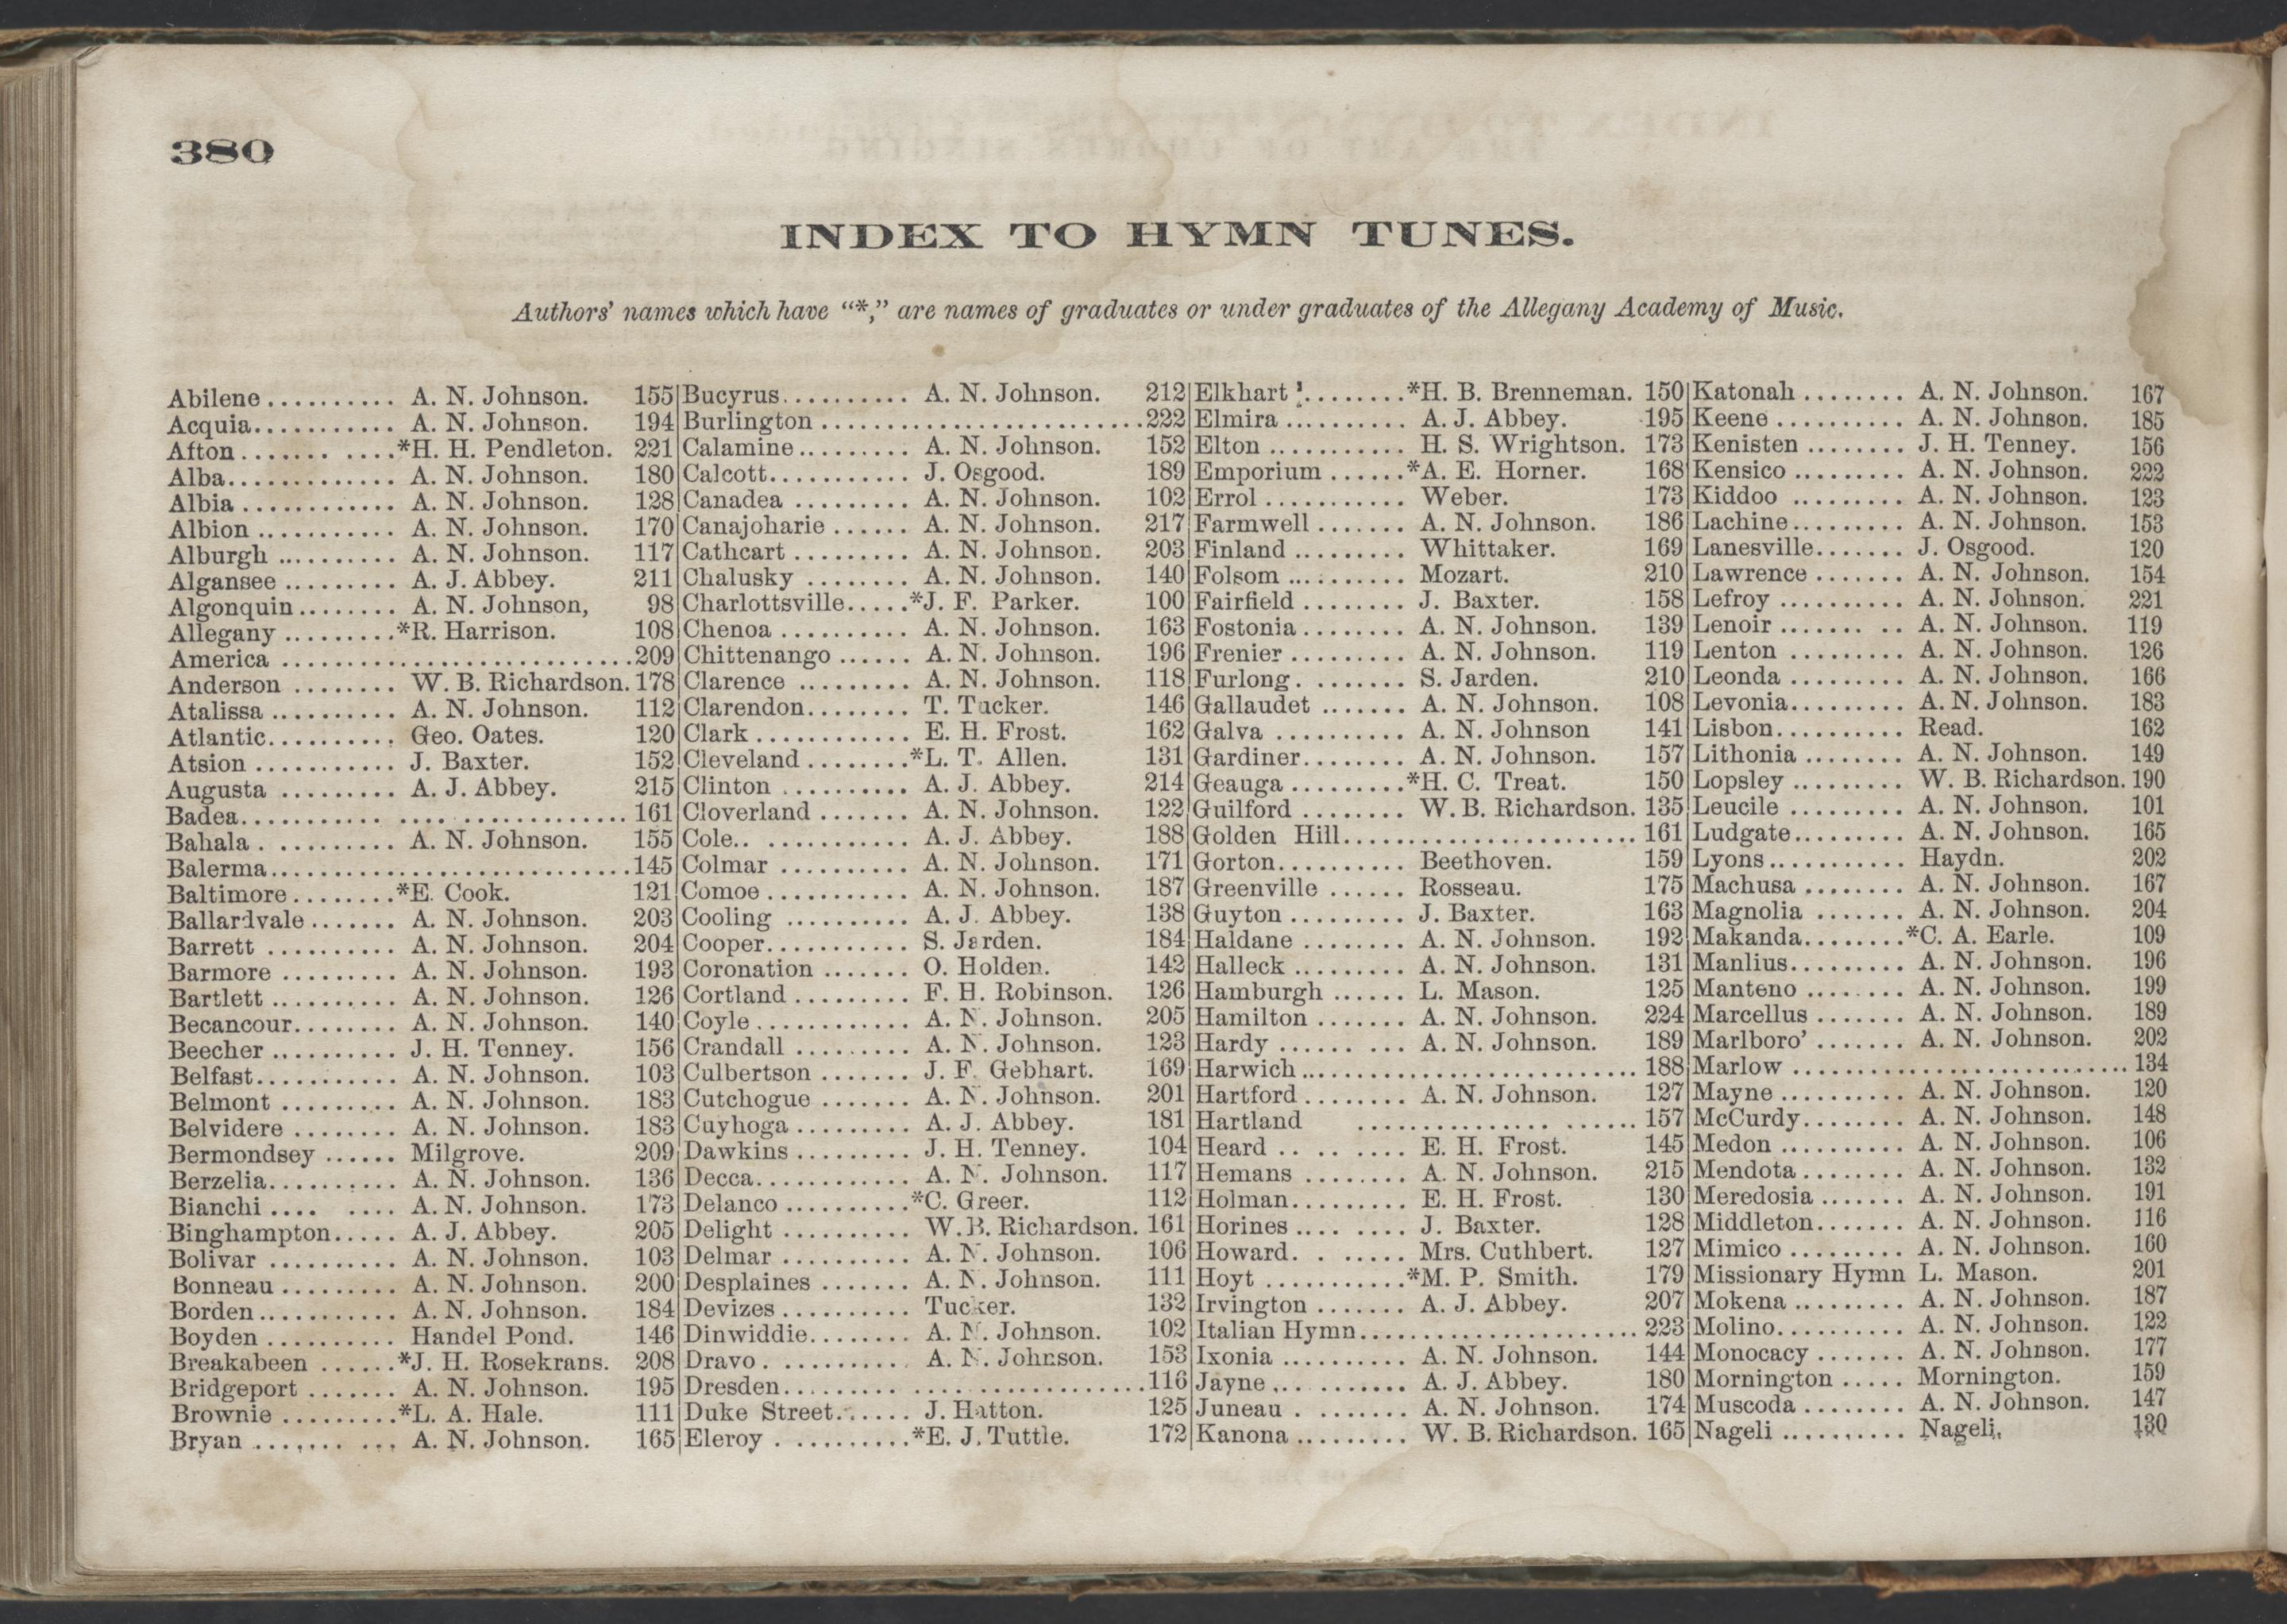 380
INDEX TO HYMN TUNES.
Authors' names which have "*," are names of graduates or under graduates of the Allegany Academy of Music.
Abilene .......... A. N. Johnson. 155
Acquia........... A. N. Johnson. 194
Afton....... ....*H. H. Pendleton. 221
Alba............. A. N. Johnson. 180
Albia ............ A. N. Johnson. 128
Albion ........... A. N. Johnson. 170
Alburgh .......... A. N. Johnson. 117
Algansee ......... A. J. Abbey. 211
Algonquin........ A. N. Johnson, 98
Allegany .........*R. Harrison. 108
America ..............................209
Anderson ........ W. B. Richardson. 178
Atalissa .......... A. N. Johnson. 112
Atlantic.......... Geo. Oates. 120
Atsion ........... J. Baxter. 152
Augusta ......... A. J. Abbey. 215
Badea........... .... .............. 161
Bahala . ......... A. N. Johnson. 155
Balerma..............................145
Baltimore........*E. Cook. 121
Ballardvale....... A. N. Johnson. 203
Barrett .......... A. N. Johnson. 204
Barmore ......... A. N. Johnson. 193
Bartlett .......... A. N. Johnson. 126
Becancour........ A. N. Johnson. 140
Beecher .......... J. H. Tenney. 156
Belfast........... A. N. Johnson. 103
Belmont ......... A. N. Johnson. 183
Belvidere ........ A. N. Johnson. 183
Bermondsey ...... Milgrove. 209
Berzelia.......... A. N. Johnson. 136
Bianchi .... .... A. N. Johnson. 173
Binghampton..... A. J. Abbey. 205
Bolivar .......... A. N. Johnson. 103
Bonneau ......... A. N. Johnson. 200
Borden........... A. N. Johnson. 184
Boyden .......... Handel Pond. 146
Breakabeen ......*J. H. Rosekrans. 208
Bridgeport ....... A. N. Johnson. 195
Brownie .........*L. A. Hale. 111
Bryan ....... ... A. N. Johnson. 165
Bucyrus.......... A. N. Johnson. 212
Burlington .........................222
Calamine......... A. N. Johnson. 152
Calcott........... J. Osgood. 189
Canadea ......... A. N. Johnson. 102
Canajoharie ...... A. N. Johnson. 217
Cathcart ......... A. N. Johnson. 203
Chalusky ........ A. N. Johnson. 140
Charlottsville.....*J. F. Parker. 100
Chenoa .......... A. N. Johnson. 163
Chittenango ...... A. N. Johnson. 196
Clarence ......... A. N. Johnson. 118
Clarendon........ T. Tucker. 146
Clark ............ E. H. Frost. 162
Cleveland ........*L. T. Allen. 131
Clinton .......... A. J. Abbey. 214
Cloverland ....... A. N. Johnson. 122
Cole.. ........... A. J. Abbey. 188
Colmar .......... A. N. Johnson. 171
Comoe ........... A. N. Johnson. 187
Cooling .......... A. J. Abbey. 138
Cooper........... S. Jarden. 184
Coronation ....... O. Holden. 142
Cortland ......... F. H. Robinson. 126
Coyle............ A. N. Johnson. 205
Crandall ......... A. N. Johnson. 123
Culbertson ....... J. F. Gebhart. 169
Cutchogue ....... A. N. Johnson. 201
Cuyhoga ......... A. J. Abbey. 181
Dawkins ......... J. H. Tenney. 104
Decca............ A. N. Johnson. 117
Delanco ..........*C. Greer. 112
Delight .......... W. B. Richardson. 161
Delmar .......... A. N. Johnson. 106
Desplaines ....... A. N. Johnson. 111
Devizes .......... Tucker. 132
Dinwiddie........ A. N. Johnson. 102
Dravo . .......... A. N. Johnson. 153
Dresden......... .................116
Duke Street....... J. Hatton. 125
Eleroy . .........*E. J. Tuttle. 172
Elkhart ........*H. B. Brenneman. 150
Elmira .......... A. J. Abbey. 195
Elton ........... H. S. Wrightson. 173
Emporium ......*A. E. Horner. 168
Errol ............ Weber. 173
Farmwell ....... A. N. Johnson. 186
Finland ......... Whittaker. 169
Folsom .......... Mozart. 210
Fairfield ........ J. Baxter. 158
Fostonia........ A. N. Johnson. 139
Frenier ......... A. N. Johnson. 119
Furlong. ....... S. Jarden. 210
Gallaudet ....... A. N. Johnson. 108
Galva .......... A. N. Johnson 141
Gardiner........ A. N. Johnson. 157
Geauga .........*H. C. Treat. 150
Guilford ........ W. B. Richardson. 135
Golden Hill......................... 161
Gorton.......... Beethoven. 159
Greenville ...... Rosseau. 175
Guyton ......... J. Baxter. 163
Haldane ........ A. N. Johnson. 192
Halleck ......... A. N. Johnson. 131
Hamburgh ...... L. Mason. 125
Hamilton ....... A. N. Johnson. 224
Hardy ...... ... A. N. Johnson. 189
Harwich............................ 188
Hartford ........ A. N. Johnson. 127
Hartland ............... ...... 157
Heard .. .. .... E. H. Frost. 145
Hemans ........ A. N. Johnson. 215
Holman......... E. H. Frost. 130
Horines .... .... J. Baxter. 128
Howard. . ..... Mrs. Cuthbert. 127
Hoyt ...........*M. P. Smith. 179
Irvington ....... A. J. Abbey. 207
Italian Hymn....................... 223
Ixonia .......... A. N. Johnson. 144
Jayne ........... A. J. Abbey. 180
Juneau . ....... A. N. Johnson. 174
Kanona ......... W. B. Richardson. 165
Katonah ........ A. N. Johnson. 167
Keene .......... A. N. Johnson. 185
Kenisten ........ J. H. Tenney. 156
Kensico ......... A. N. Johnson. 222
Kiddoo ......... A. N. Johnson. 123
Lachine......... A. N. Johnson. 153
Lanesville....... J. Osgood. 120
Lawrence ....... A. N. Johnson. 154
Lefroy .......... A. N. Johnson. 221
Lenoir ....... .. A. N. Johnson. 119
Lenton ......... A. N. Johnson. 126
Leonda ......... A. N. Johnson. 166
Levonia......... A. N. Johnson. 183
Lisbon.......... Read. 162
Lithonia ........ A. N. Johnson. 149
Lopsley ......... W. B. Richardson. 190
Leucile ......... A. N. Johnson. 101
Ludgate......... A. N. Johnson. 165
Lyons........... Haydn. 202
Machusa ........ A. N. Johnson. 167
Magnolia ....... A. N. Johnson. 204
Makanda........*C. A. Earle. 109
Manlius......... A. N. Johnson. 196
Manteno ........ A. N. Johnson. 199
Marcellus ....... A. N. Johnson. 189
Marlboro' ....... A. N. Johnson. 202
Marlow ............................ 134
Mayne .......... A. N. Johnson. 120
McCurdy........ A. N. Johnson. 148
Medon .......... A. N. Johnson. 106
Mendota ........ A. N. Johnson. 132
Meredosia ....... A. N. Johnson. 191
Middleton....... A. N. Johnson. 116
Mimico ......... A. N. Johnson. 160
Missionary Hymn L. Mason. 201
Mokena ......... A. N. Johnson. 187
Molino.......... A. N. Johnson. 122
Monocacy ....... A. N. Johnson. 177
Mornington ..... Mornington. 159
Muscoda ........ A. N. Johnson. 147
Nageli .......... Nageli, 130